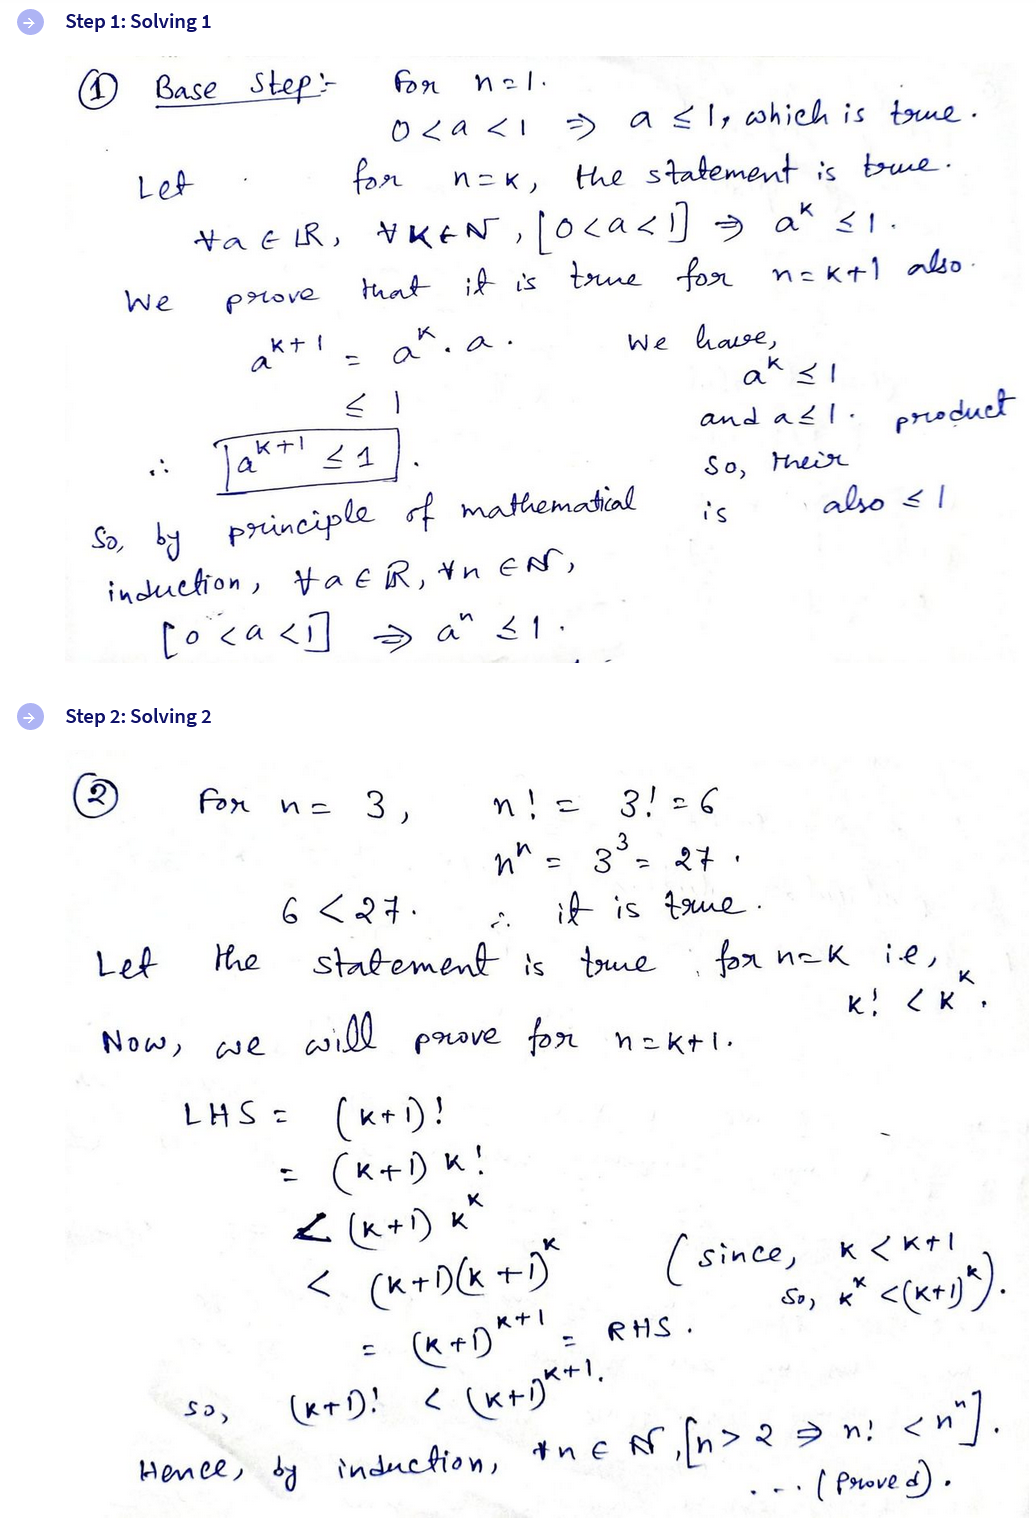 Step 1: Solving 1
① Base Step:- For n=1.
0<a<1 ⇒ a ≤ 1, which is true.
Let for n=k, the statement is true.
∀a ∈ ℝ, ∀k∈N, [0<a<1] ⇒ a^k ≤ 1.
We prove that it is true for n=k+1 also.
a^{k+1} = a^k . a .
≤ 1
∴ a^{k+1} ≤ 1 .
We have,
a^k ≤ 1
and a≤1.
So, their product
is also ≤ 1
So, by principle of mathematical
induction, ∀a ∈ ℝ, ∀n ∈ N,
[0<a<1] ⇒ a^n ≤ 1.
Step 2: Solving 2
② For n = 3, n! = 3! = 6
n^n = 3^3 = 27 .
6 < 27. ∴ it is true.
Let the statement is true for n=k i.e,
k! < k^k.
Now, we will prove for n=k+1.
LHS = (k+1)!
= (k+1) k!
< (k+1) k^k
< (k+1)(k+1)^k (since, k < k+1
so, k^k <(k+1)^k).
= (k+1)^{k+1} = RHS .
so, (k+1)! < (k+1)^{k+1}.
Hence, by induction, ∀n ∈ N, [n > 2 ⇒ n! < n^n].
... (Proved).